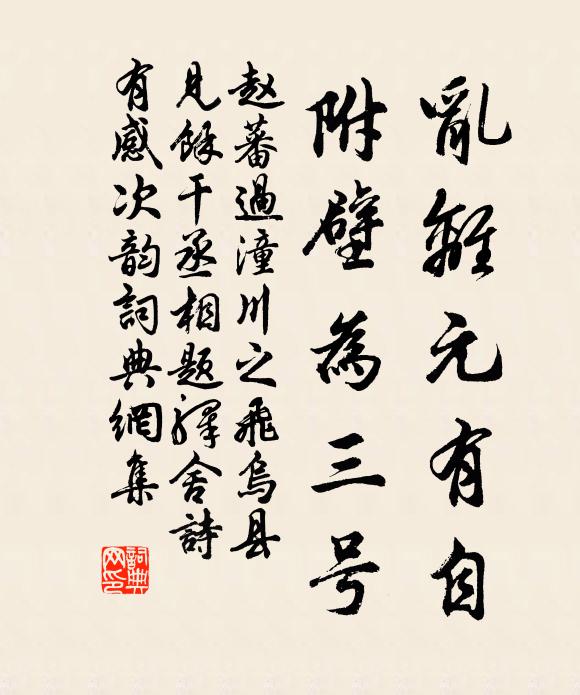 亂離元有自
附壁為三号
赵蕃過潼川之飛烏县
見餘干丞相題驛舍詩
有感次韵詞典網集
詞典网印